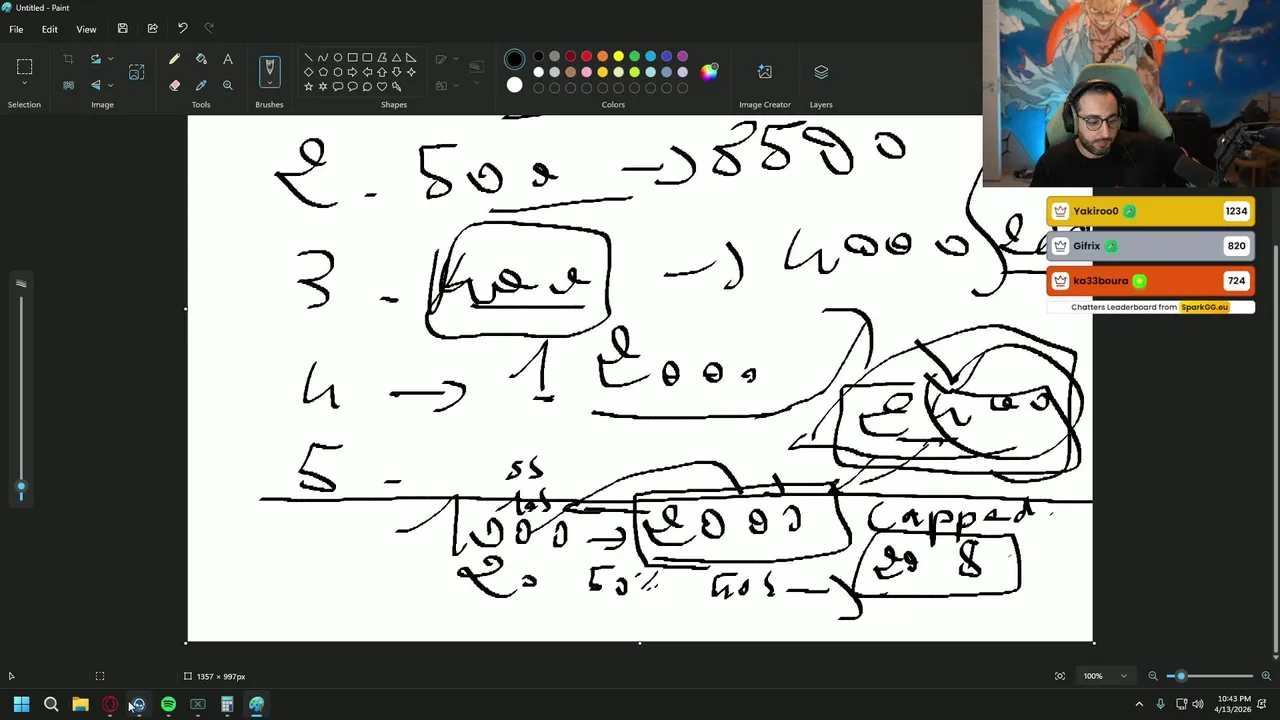 Untitled - Paint
File Edit View
Selection Image Tools Brushes Shapes Colors Image Creator Layers
2. 500 → 3500
3. 400 → 4000
4 → 1 2000
2400
5 -
1000 → 2000 Capped
20 50% 40s →
Yakiroo0 1234
Gifrix 820
ka33boura 724
Chatters Leaderboard from SparkGG.eu
1357 × 997px 100%
10:43 PM
4/13/2026